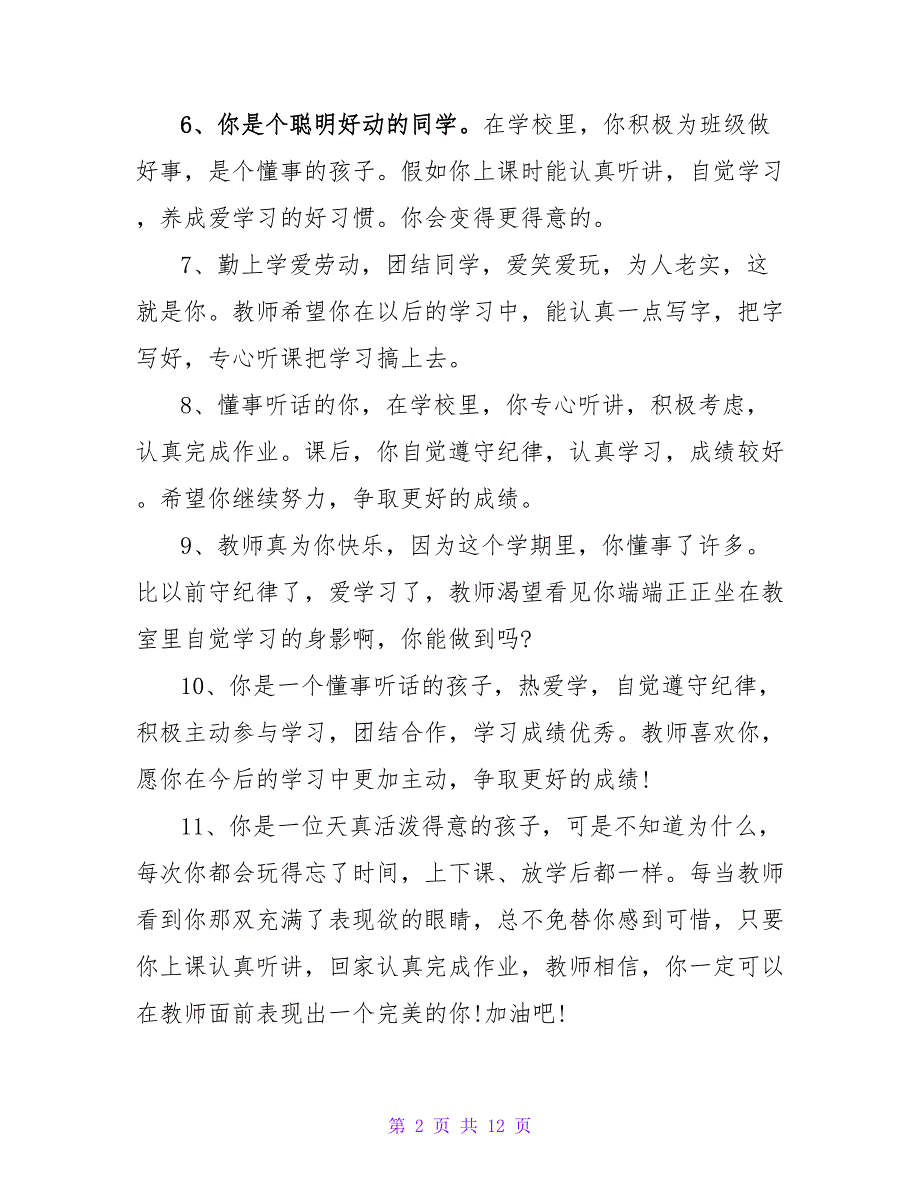 6、你是个聪明好动的同学。在学校里，你积极为班级做
好事，是个懂事的孩子。假如你上课时能认真听讲，自觉学习
，养成爱学习的好习惯。你会变得更得意的。
7、勤上学爱劳动，团结同学，爱笑爱玩，为人老实，这
就是你。教师希望你在以后的学习中，能认真一点写字，把字
写好，专心听课把学习搞上去。
8、懂事听话的你，在学校里，你专心听讲，积极考虑，
认真完成作业。课后，你自觉遵守纪律，认真学习，成绩较好
。希望你继续努力，争取更好的成绩。
9、教师真为你快乐，因为这个学期里，你懂事了许多。
比以前守纪律了，爱学习了，教师渴望看见你端端正正坐在教
室里自觉学习的身影啊，你能做到吗?
10、你是一个懂事听话的孩子，热爱学，自觉遵守纪律，
积极主动参与学习，团结合作，学习成绩优秀。教师喜欢你，
愿你在今后的学习中更加主动，争取更好的成绩!
11、你是一位天真活泼得意的孩子，可是不知道为什么，
每次你都会玩得忘了时间，上下课、放学后都一样。每当教师
看到你那双充满了表现欲的眼睛，总不免替你感到可惜，只要
你上课认真听讲，回家认真完成作业，教师相信，你一定可以
在教师面前表现出一个完美的你!加油吧!
第 2 页 共 12 页